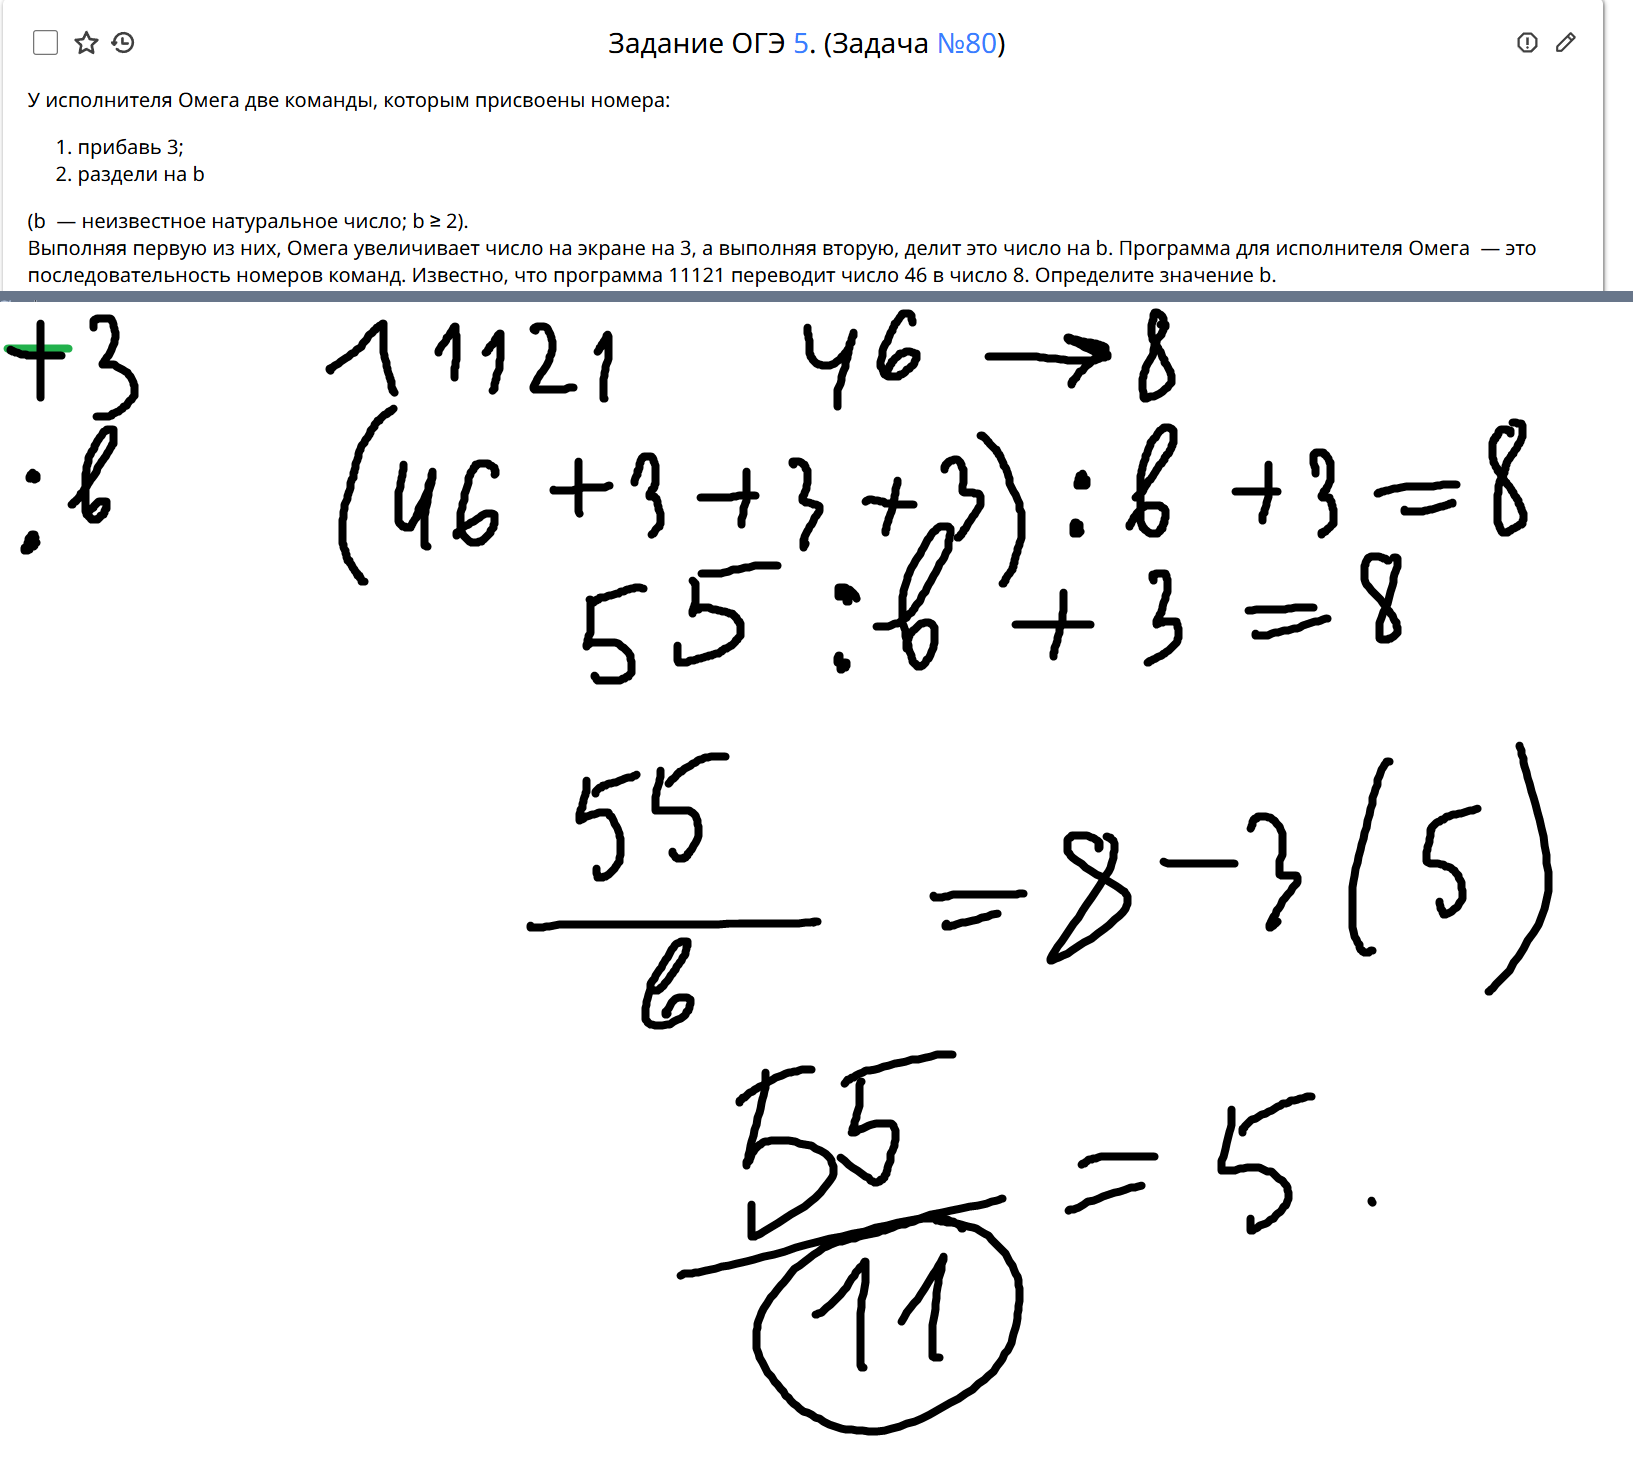 Задание ОГЭ 5. (Задача №80)
У исполнителя Омега две команды, которым присвоены номера:
1. прибавь 3;
2. раздели на b
(b — неизвестное натуральное число; b ≥ 2).
Выполняя первую из них, Омега увеличивает число на экране на 3, а выполняя вторую, делит это число на b. Программа для исполнителя Омега — это
последовательность номеров команд. Известно, что программа 11121 переводит число 46 в число 8. Определите значение b.
+3 11121 46 → 8
:b (46 +3 +3 +3) : b +3 = 8
55 : b + 3 = 8
55
= 8 - 3 (5)
b
55
= 5.
11